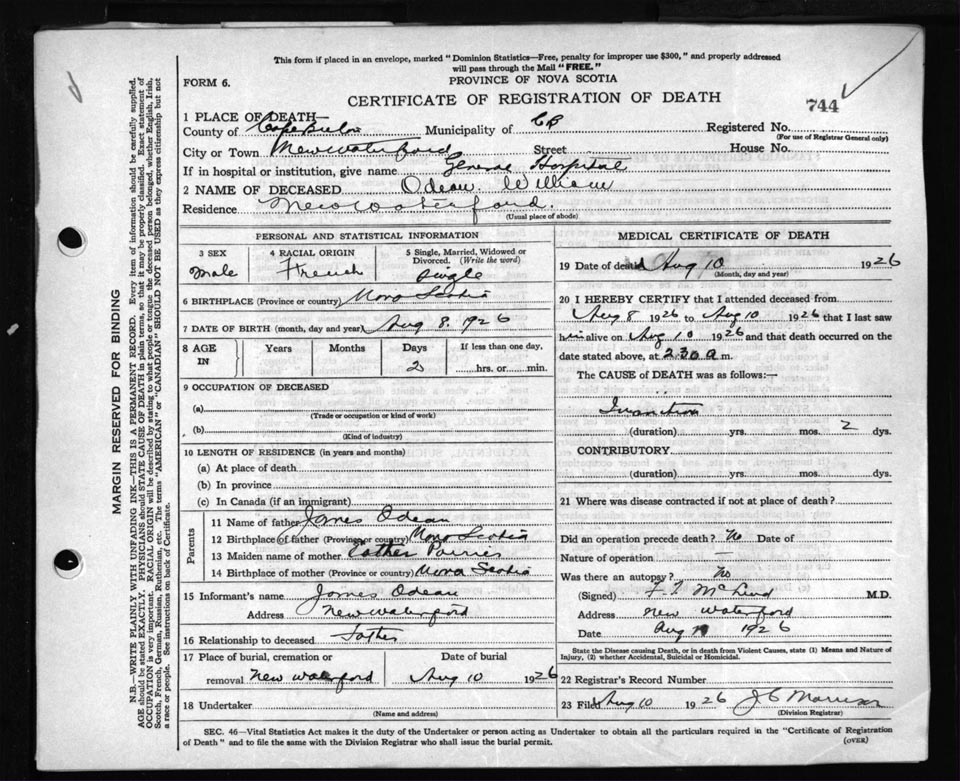 This form if placed in an envelope, marked "Dominion Statistics—Free, penalty for improper use $300," and properly addressed
will pass through the Mail "FREE."
FORM 6.
PROVINCE OF NOVA SCOTIA
CERTIFICATE OF REGISTRATION OF DEATH
744
1 PLACE OF DEATH—
County of Cape Breton Municipality of CB Registered No.
(For use of Registrar General only)
City or Town New Waterford Street House No.
If in hospital or institution, give name General Hospital
2 NAME OF DECEASED Odeau William
Residence New Waterford.
(Usual place of abode)
PERSONAL AND STATISTICAL INFORMATION
3 SEX 4 RACIAL ORIGIN 5 Single, Married, Widowed or
Divorced. (Write the word)
Male French Single
6 BIRTHPLACE (Province or country) Nova Scotia
7 DATE OF BIRTH (month, day and year) Aug 8. 1926
8 AGE IN Years Months Days If less than one day,
2 hrs. or min.
9 OCCUPATION OF DECEASED
(a)
(Trade or occupation or kind of work)
(b)
(Kind of industry)
10 LENGTH OF RESIDENCE (in years and months)
(a) At place of death
(b) In province
(c) In Canada (if an immigrant)
Parents
11 Name of father James Odeau
12 Birthplace of father (Province or country) Nova Scotia
13 Maiden name of mother
14 Birthplace of mother (Province or country) Nova Scotia
15 Informant's name James Odeau
Address New Waterford
16 Relationship to deceased Father
17 Place of burial, cremation or Date of burial
removal New Waterford Aug 10 1926
18 Undertaker
(Name and address)
MEDICAL CERTIFICATE OF DEATH
19 Date of death Aug 10 1926
(Month, day and year)
20 I HEREBY CERTIFY that I attended deceased from
Aug 8 1926 to Aug 10 1926 that I last saw
him alive on Aug 10 1926 and that death occurred on the
date stated above, at 2.30 a m.
The CAUSE of DEATH was as follows:—
Inanition
(duration) yrs. mos. 2 dys.
CONTRIBUTORY
(duration) yrs. mos. dys.
21 Where was disease contracted if not at place of death?
Did an operation precede death? No Date of
Nature of operation —
Was there an autopsy? No
(Signed) M.D.
Address New Waterford
Date Aug 1926
State the Disease causing Death, or in death from Violent Causes, state (1) Means and Nature of
Injury, (2) whether Accidental, Suicidal or Homicidal.
22 Registrar's Record Number
23 Filed Aug 10 1926
(Division Registrar)
SEC. 46—Vital Statistics Act makes it the duty of the Undertaker or person acting as Undertaker to obtain all the particulars required in the "Certificate of Registration
of Death" and to file the same with the Division Registrar who shall issue the burial permit.
(OVER)
MARGIN RESERVED FOR BINDING
N.B.—WRITE PLAINLY WITH UNFADING INK—THIS IS A PERMANENT RECORD. Every item of information should be carefully supplied.
AGE should be stated EXACTLY. PHYSICIANS should STATE CAUSE OF DEATH in plain terms, so that it may be properly classified. Exact statement of
OCCUPATION is very important. RACIAL ORIGIN will be described by stating to what people or tongue the deceased person belonged, whether English, Irish,
Scotch, French, German, Russian, Ruthenian, etc. The terms "AMERICAN" or "CANADIAN" SHOULD NOT BE USED as they express citizenship but not
a race or people. See instructions on back of Certificate.